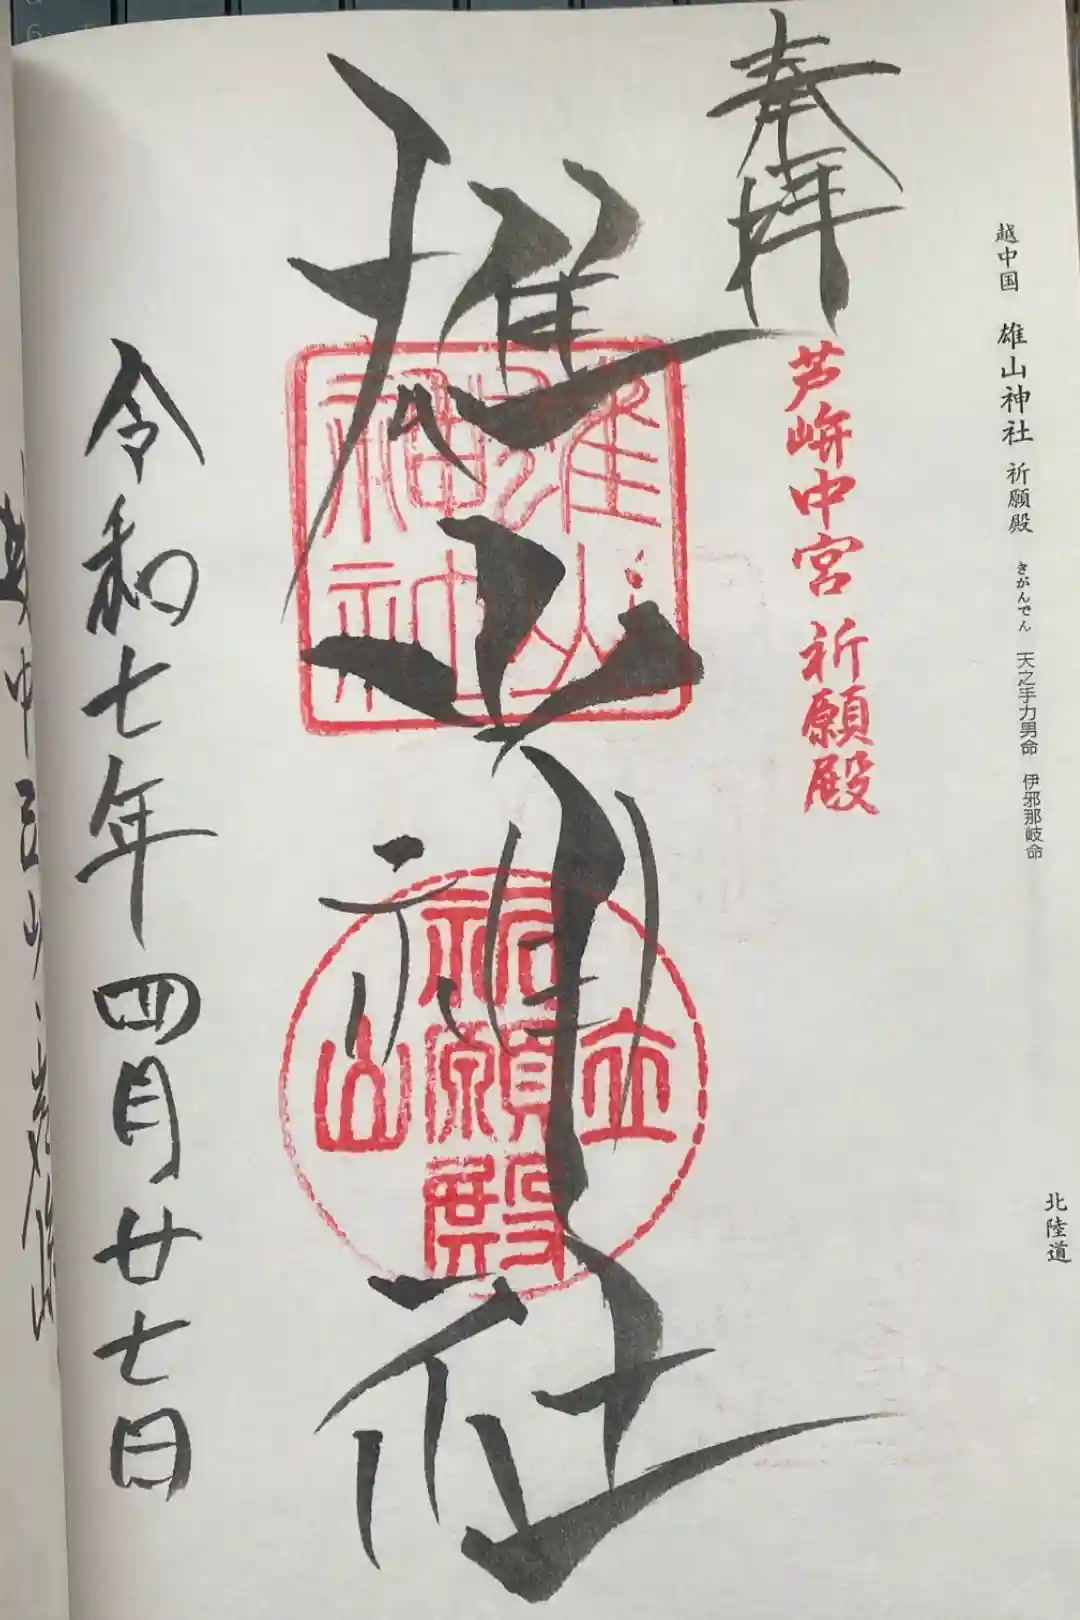 越中国 雄山神社 祈願殿 きがんでん 天之手力男命 伊邪那岐命
北陸道
奉拝
芦峅中宮 祈願殿
雄山神社
雄山神社
立山
祈願殿
令和七年四月廿七日